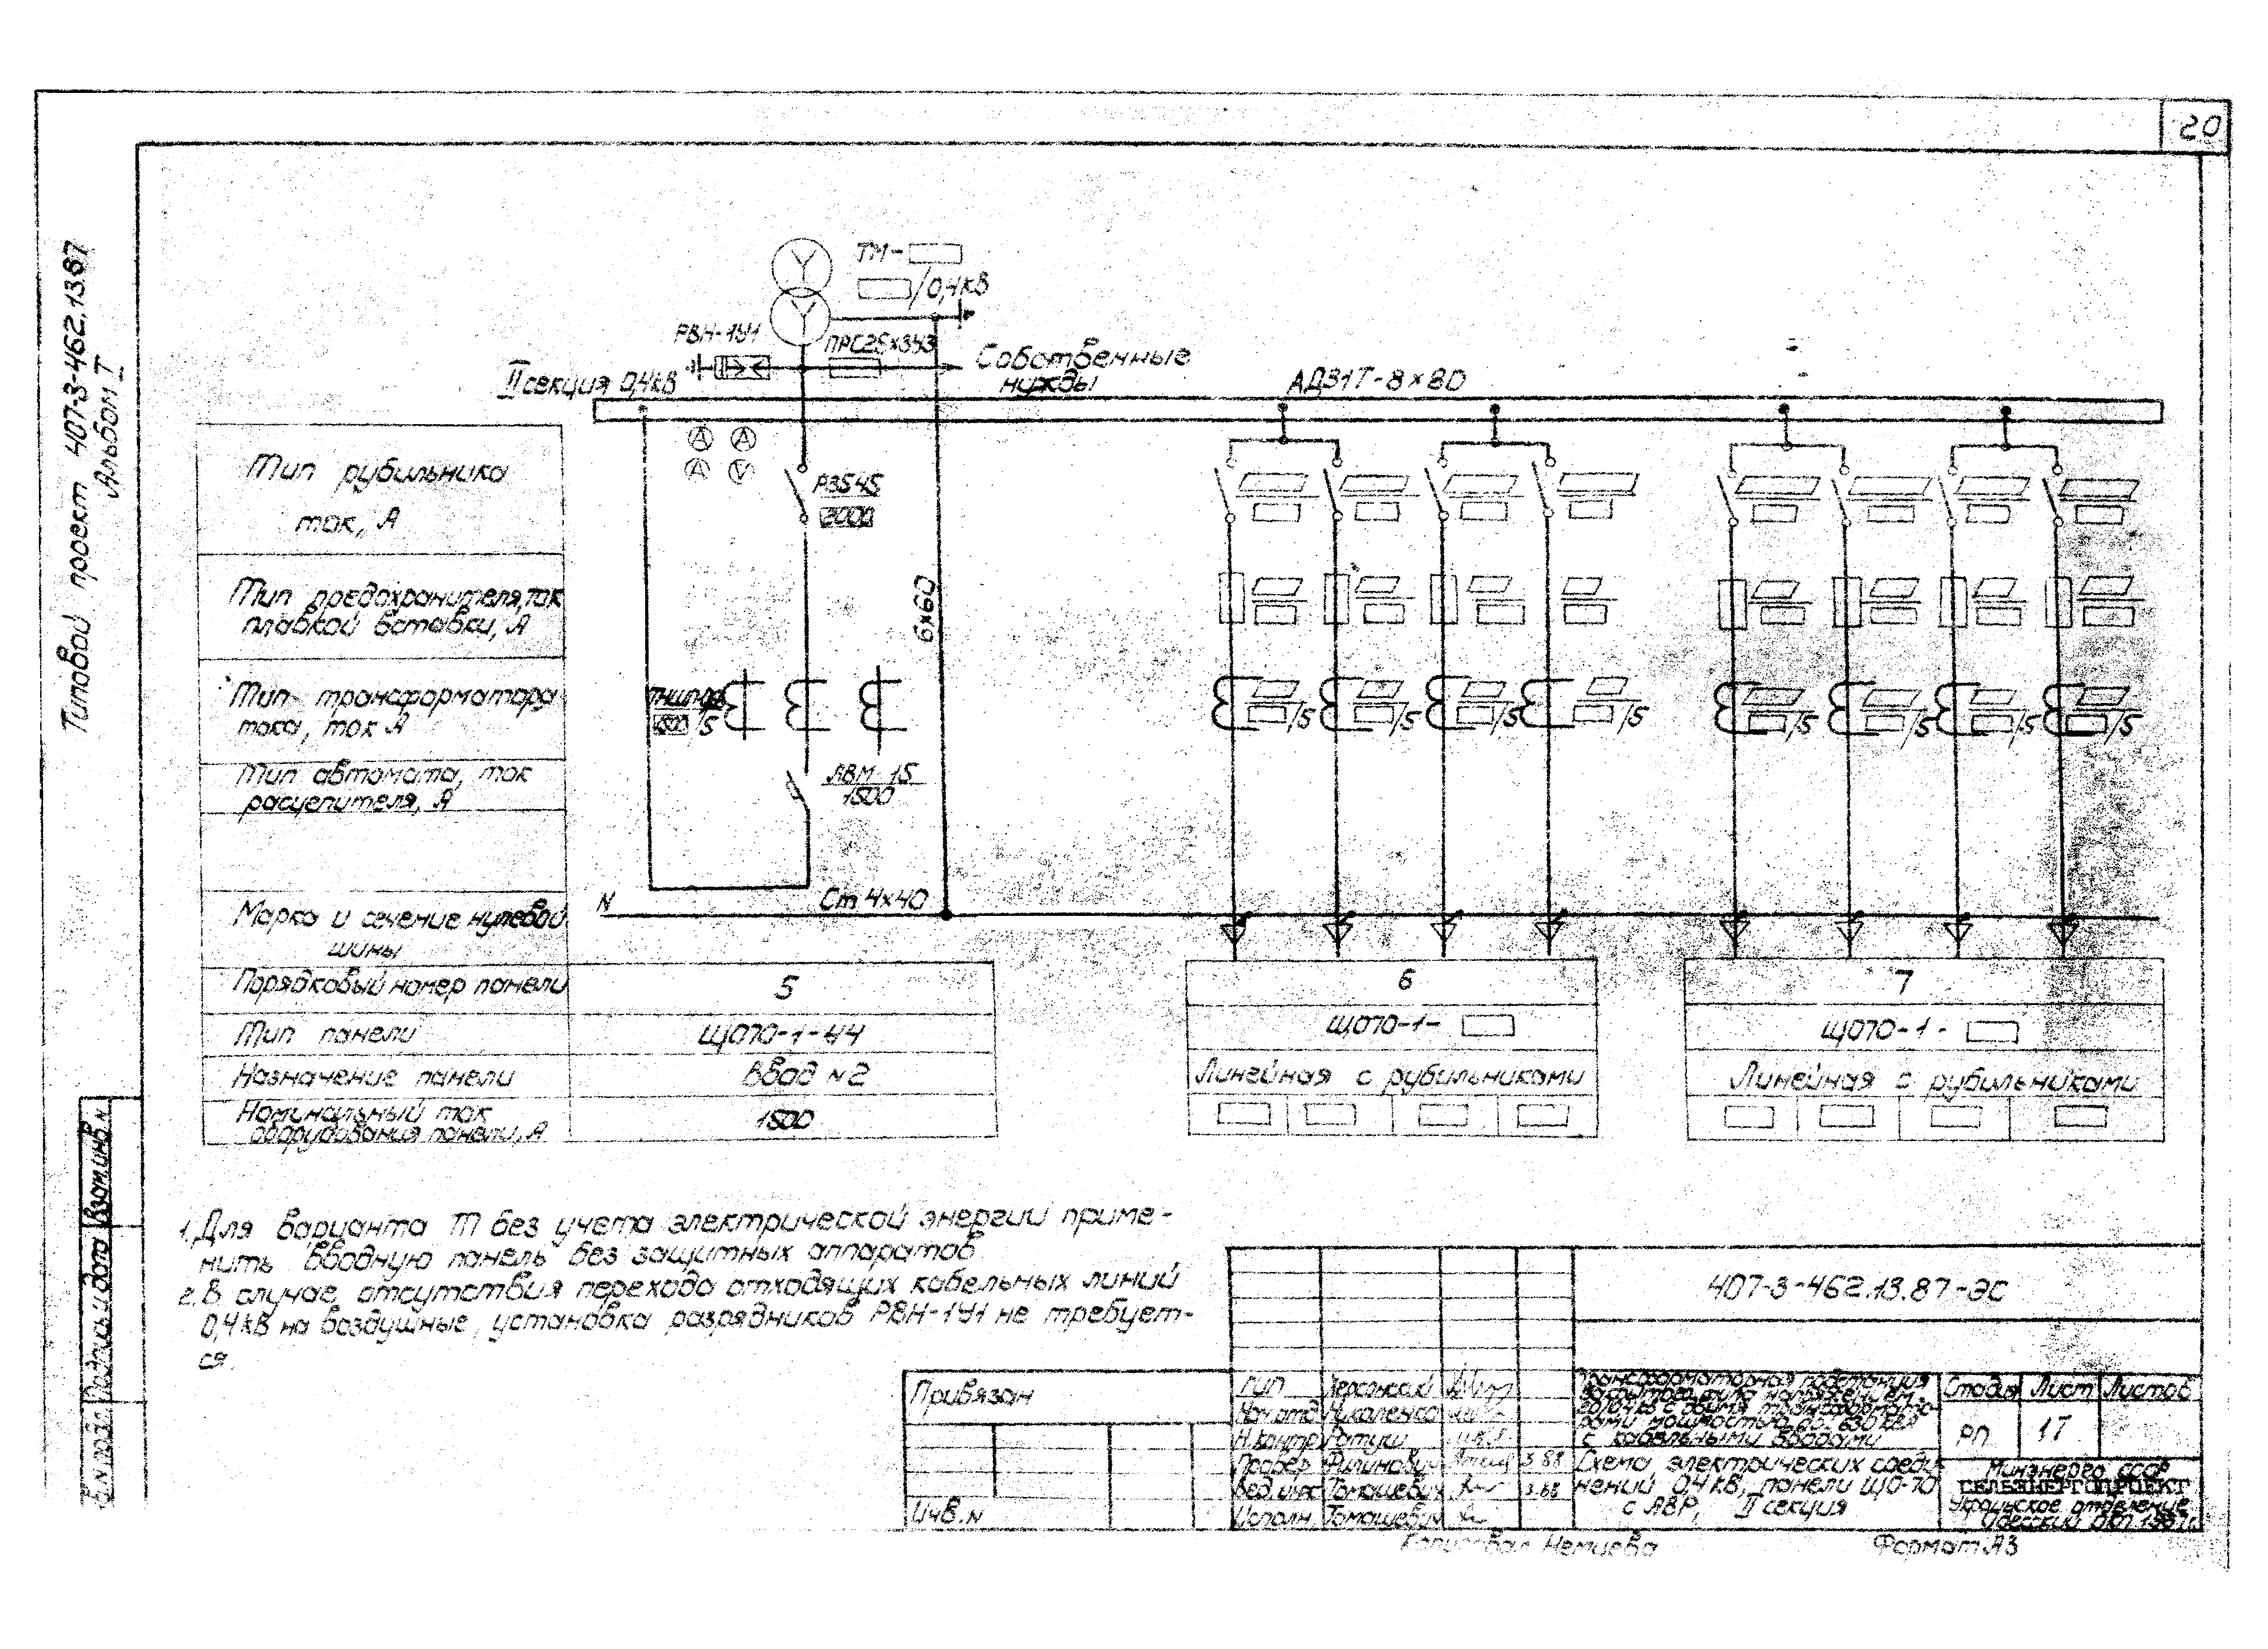 20
Типовой проект 407-3-462.13.87
Альбом I
ТМ-
/0,4кВ
РВН-1У1
ПРС25х3У3
Собственные
нужды
II секция 0,4кВ
АД31Т-8×80
А А
А V
Тип рубильника
ток, А
Р3545
2000
Тип предохранителя, ток
плавкой вставки, А
6×60
Тип трансформатора
тока, ток А
1500 /5
/5 /5 /5 /5 /5 /5 /5 /5
Тип автомата, ток
расцепителя, А
АВМ 15
1500
Марка и сечение нулевой
шины
N
Ст 4×40
Порядковый номер панели 5 6 7
Тип панели ЩО70-1-44 ЩО70-1- ЩО70-1-
Назначение панели Ввод N2 Линейная с рубильниками Линейная с рубильниками
Номинальный ток
оборудования панели, А 1500
1. Для варианта ТП без учета электрической энергии приме-
нить вводную панель без защитных аппаратов.
2. В случае отсутствия перехода отходящих кабельных линий
0,4кВ на воздушные, установка разрядников РВН-1У1 не требует-
ся.
Взам.инв.N
Подпись и дата
407-3-462.13.87-ЭС
Привязан
Инв.N
ГИП Херсонский
Нач.отд Николенко
Н.контр Ратуш
Провер. Филинович 3.88
Вед.инж Томашевич 3.88
Исполн. Томашевич
Трансформаторная подстанция
закрытого типа напряжением
с двумя трансформато-
рами мощностью до 630 кВА
с кабельными вводами
Схема электрических соеди-
нений 0,4 кВ, панели ЩО-70
с АВР, II секция
Стадия Лист Листов
РП 17
Минэнерго СССР
СЕЛЬЭНЕРГОПРОЕКТ
Украинское отделение
Копировал Немцева
Формат А3